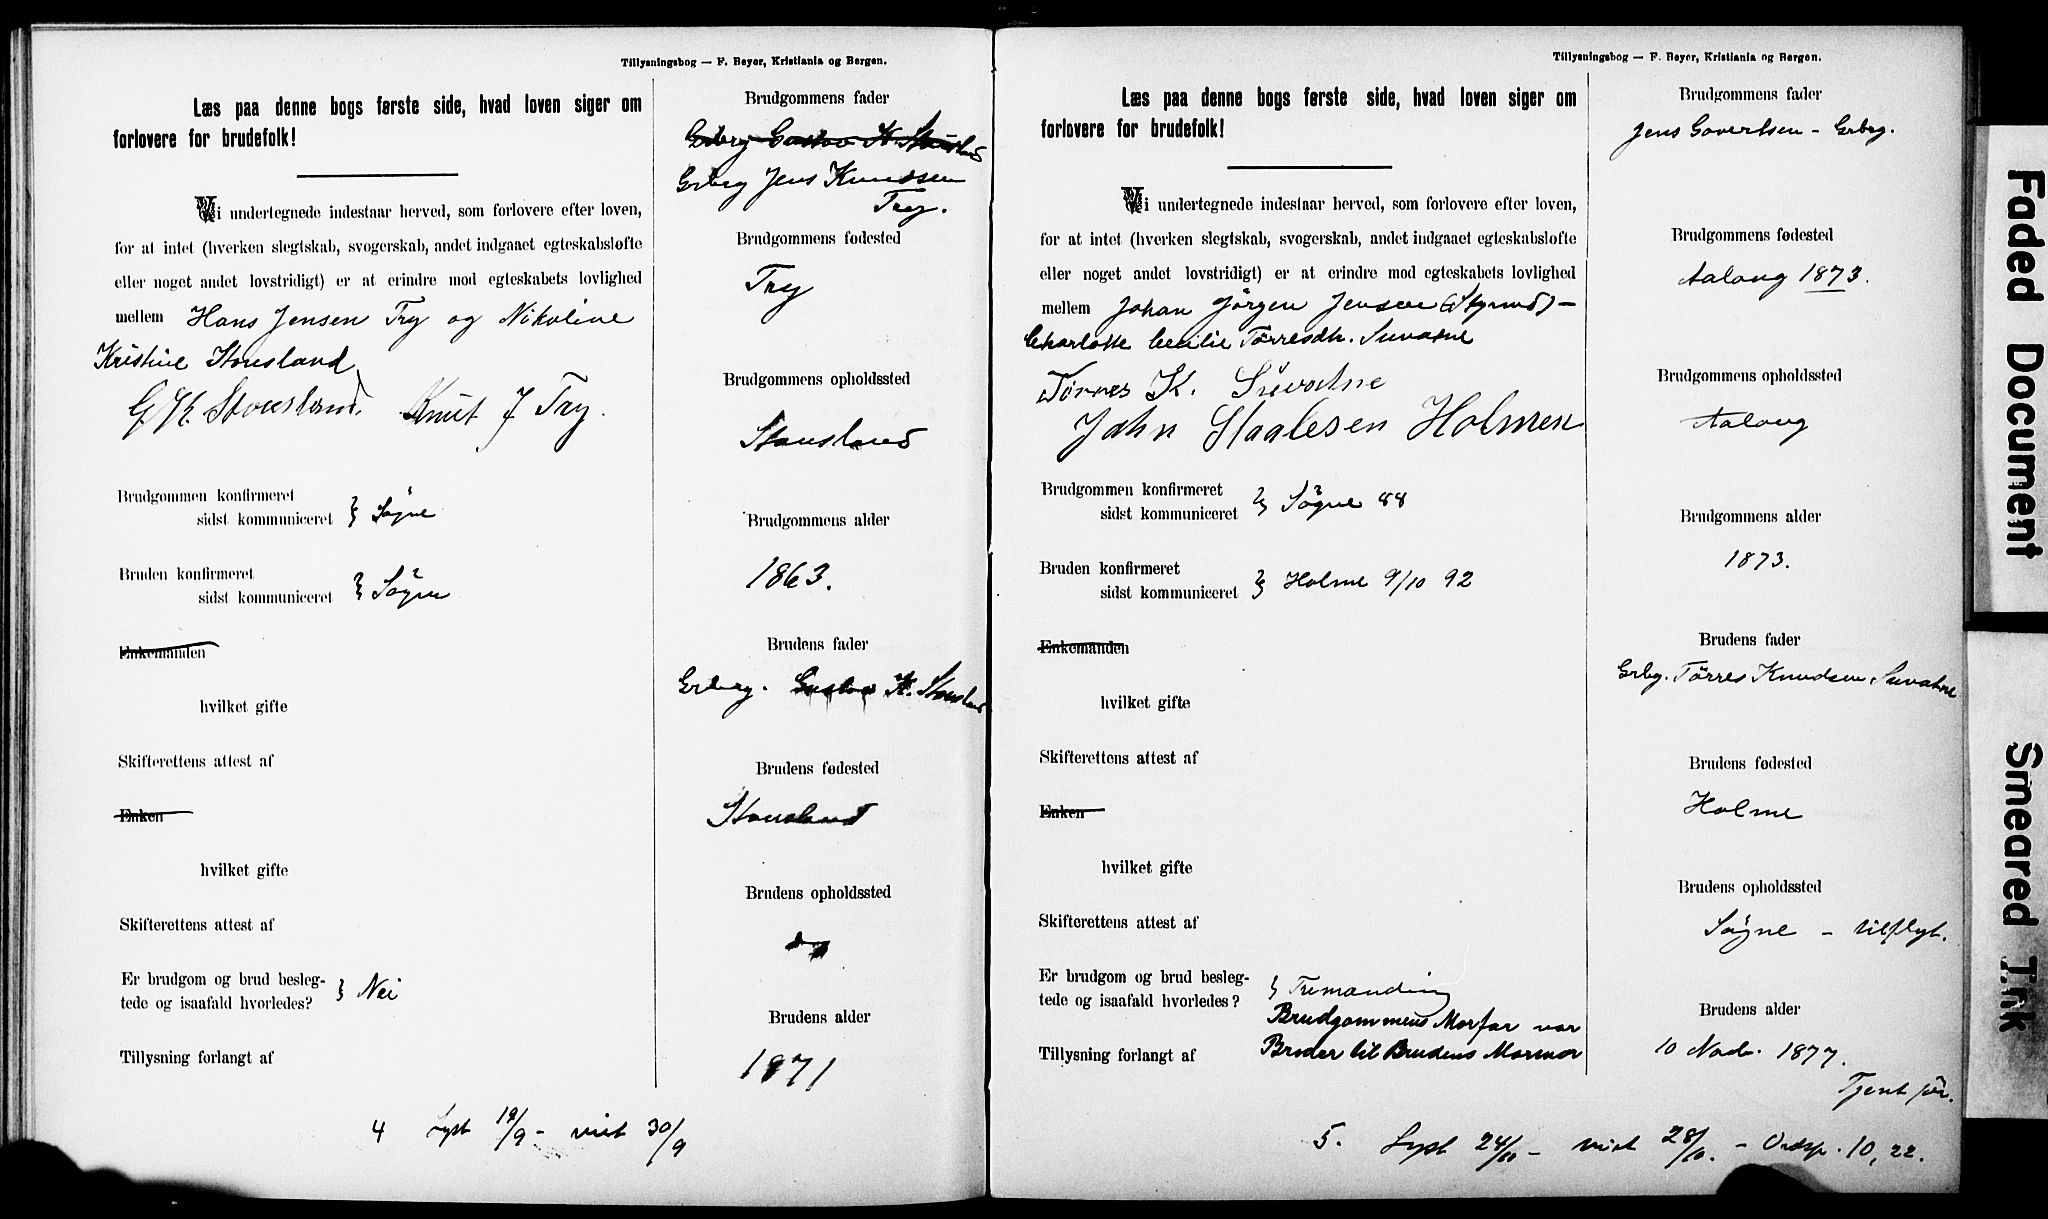 Tillysningsbog — F. Beyer, Kristiania og Bergen.
Læs paa denne bogs første side, hvad loven siger om
forlovere for brudefolk!
Vi undertegnede indestaar herved, som forlovere efter loven,
for at intet (hverken slegtskab, svogerskab, andet indgaaet egteskabsløfte
eller noget andet lovstridigt) er at erindre mod egteskabets lovlighed
mellem Hans Jensen Try og Nikoline
Kristine Stousland
G. K. Stousland. Knut J Try.
Brudgommen konfirmeret
sidst kommuniceret } Søgne
Bruden konfirmeret
sidst kommuniceret } Søgne
Enkemanden
hvilket gifte
Skifterettens attest af
Enken
hvilket gifte
Skifterettens attest af
Er brudgom og brud besleg-
tede og isaafald hvorledes? } Nei
Tillysning forlangt af
Brudgommens fader
Grbrg Gustav K. Stousland
Grbrg Jens Knudsen
Try.
Brudgommens fødested
Try
Brudgommens opholdssted
Stousland
Brudgommens alder
1863.
Brudens fader
Grbrg. Gustav K. Stousland
Brudens fødested
Stousland
Brudens opholdssted
do
Brudens alder
1871
4 Lyst 19/9 - viet 30/9
Tillysningsbog — F. Beyer, Kristiania og Bergen.
Læs paa denne bogs første side, hvad loven siger om
forlovere for brudefolk!
Vi undertegnede indestaar herved, som forlovere efter loven,
for at intet (hverken slegtskab, svogerskab, andet indgaaet egteskabsløfte
eller noget andet lovstridigt) er at erindre mod egteskabets lovlighed
mellem Johan Jørgen Jensen (Styrmd) -
Charlotte Cecilie Tørresdtr. Suvatne
Tørres K. Suvatne
John Staalesen Holmen
Brudgommen konfirmeret
sidst kommuniceret } Søgne 88
Bruden konfirmeret
sidst kommuniceret } Holme 9/10 92
Enkemanden
hvilket gifte
Skifterettens attest af
Enken
hvilket gifte
Skifterettens attest af
Er brudgom og brud besleg-
tede og isaafald hvorledes? } Tremænding
Brudgommens Morfar var
Broder til Brudens Mormor
Tillysning forlangt af
Brudgommens fader
Jens Govertsen - Grbrg.
Brudgommens fødested
Aalong 1873.
Brudgommens opholdssted
Aalong
Brudgommens alder
1873.
Brudens fader
Grbg. Tørres Knudsen Suvatne
Brudens fødested
Holme
Brudens opholdssted
Søgne - tilflyt.
Brudens alder
10 Novbr. 1877.
Tjent for.
5. Lyst 24/10 - viet 28/10. - Ordsp. 10, 22.
Faded Document
Smeared Ink